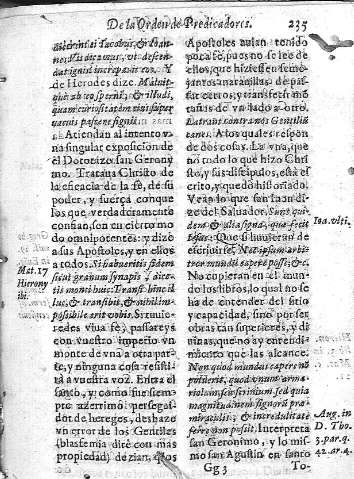 De la Orden de Predicadores. 235
Iacobus, & Ioan-
nes. Vis dicamus, vt descen-
dat ignis increpauit eos. Y
de Herodes dize. Maluit-
que ab eo sperni, & illudi,
quam curiositatem eius super
vacuis pascere signis.
Atiendan al intento v-
na singular exposicion de
el Dotorizo san Gerony
mo. Trataua Christo de
la eficacia de la fè, de su
poder, y fuerça conque
los que verdaderamente
confian, son en cierto mo
do omnipotentes: y dizè
a sus Apostoles, y en ellos
a todos. Si habueritis fidem
sicut granum synapis, dice-
tis monti huic: Transi hinc il
luc, & transibit, & nihil im-
possibile erit vobis. Si tuuie-
redes viua fe, passareys
con vuestro imperio vn
monte de vna a otra par-
te, y ninguna cosa resisti-
rà a vuestra voz. Entra el
santo, y como fue siem-
pre azerrimo persegui-
dor de hereges, deshaze
vn error de los Gentiles
(blasfemia dirè con mas
propiedad) dezian, èstos
Mat. 17
Hierony
ibi.
Apostoles auian tenido
poca fe, pues no se lee de
ellos, que hiziessen seme-
jantes marauillas, de pas-
sar cerros, y transferir mõ
tañas de vn lado a otro.
Latrant contra nos Gentilium
canes. A los quales respon
de dos cosas. La vna, que
no todo lo que hizo Chri-
sto, y sus discipulos, està es
crito, y quedò historiado.
Vean lo que san Iuan di-
ze del Saluador. Sunt qui-
dem & alia signa, quæ fecit
Iesus. Que si huuieran de
escriuirse, Nec ipsum arbi-
tror mundum capere posse: &c.
No cupieran en el mun-
do los libros, lo qual no se
ha de entender del sitio
y capacidad, sino por ser
obras tan superiores, y di
uinas, que no ay entendi-
miento que las alcance.
Non quod mundus capere no
potuerit, quod vnum arma-
riolum, seu scrinium, sed quia
magnitudinem signorum præ
miraculis, & incredulitate
ferre non possit. Interpreta
san Geronimo, y lo mis-
mo san Agustin en santo
Ioa. vlti.
Aug. in
D. Tho.
3. par. q.
42. ar. 4.
Gg 3 To-